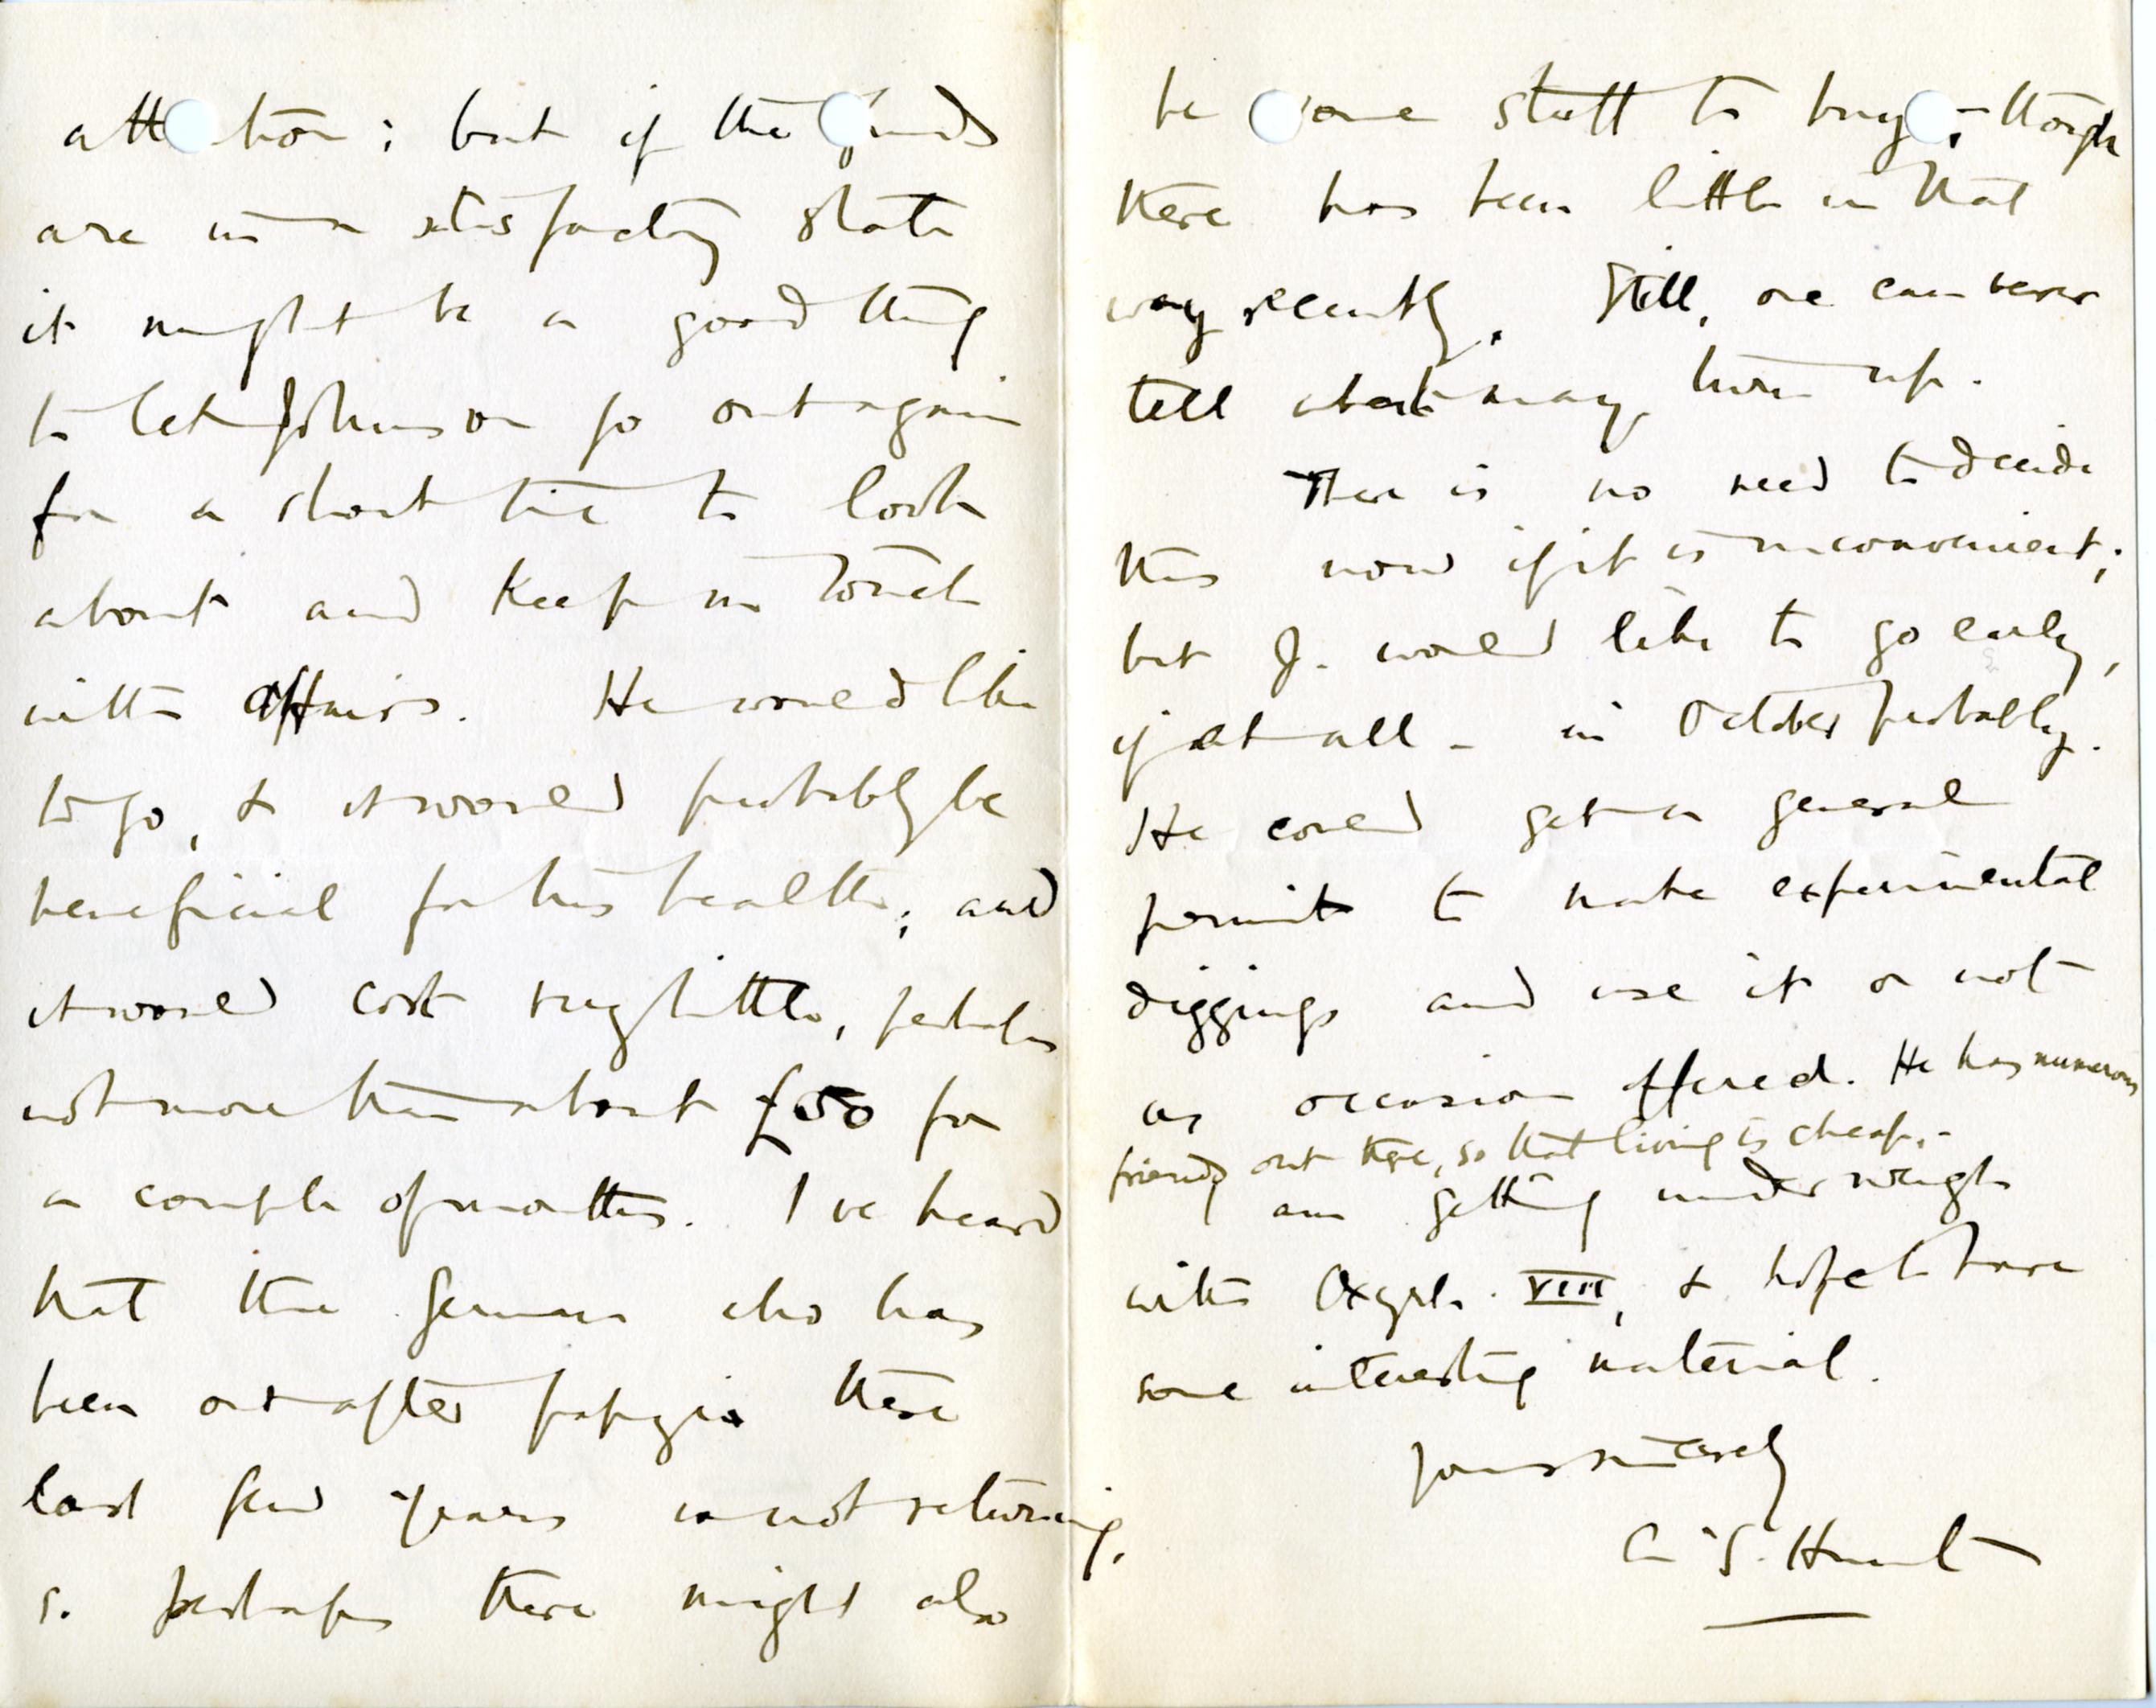 attention; but if the funds
are in a satisfactory state
it might be a good thing
to let Johnson go out again
for a short time to look
about and keep in touch
with affairs. He would like
to go, & it would probably be
beneficial for his health; and
it would cost very little, perhaps
not more than about £50 for
a couple of months. I've heard
that the German who has
been out after papyri there
last few years is not returning,
so perhaps there might also
be some stuff to buy; - though
there has been little in that
way recently. Still, one can never
tell what may turn up.
There is no need to decide
this now if it is inconvenient;
but J. would like to go early,
if at all - in October probably.
He could get a general
permit to make experimental
diggings and use it or not
as occasion offered. He has numerous
friends out there, so that living is cheap. -
am getting under weigh
with Oxyrh. VIII, & hope to have
some interesting material.
Yours sincerely
A. S. Hunt